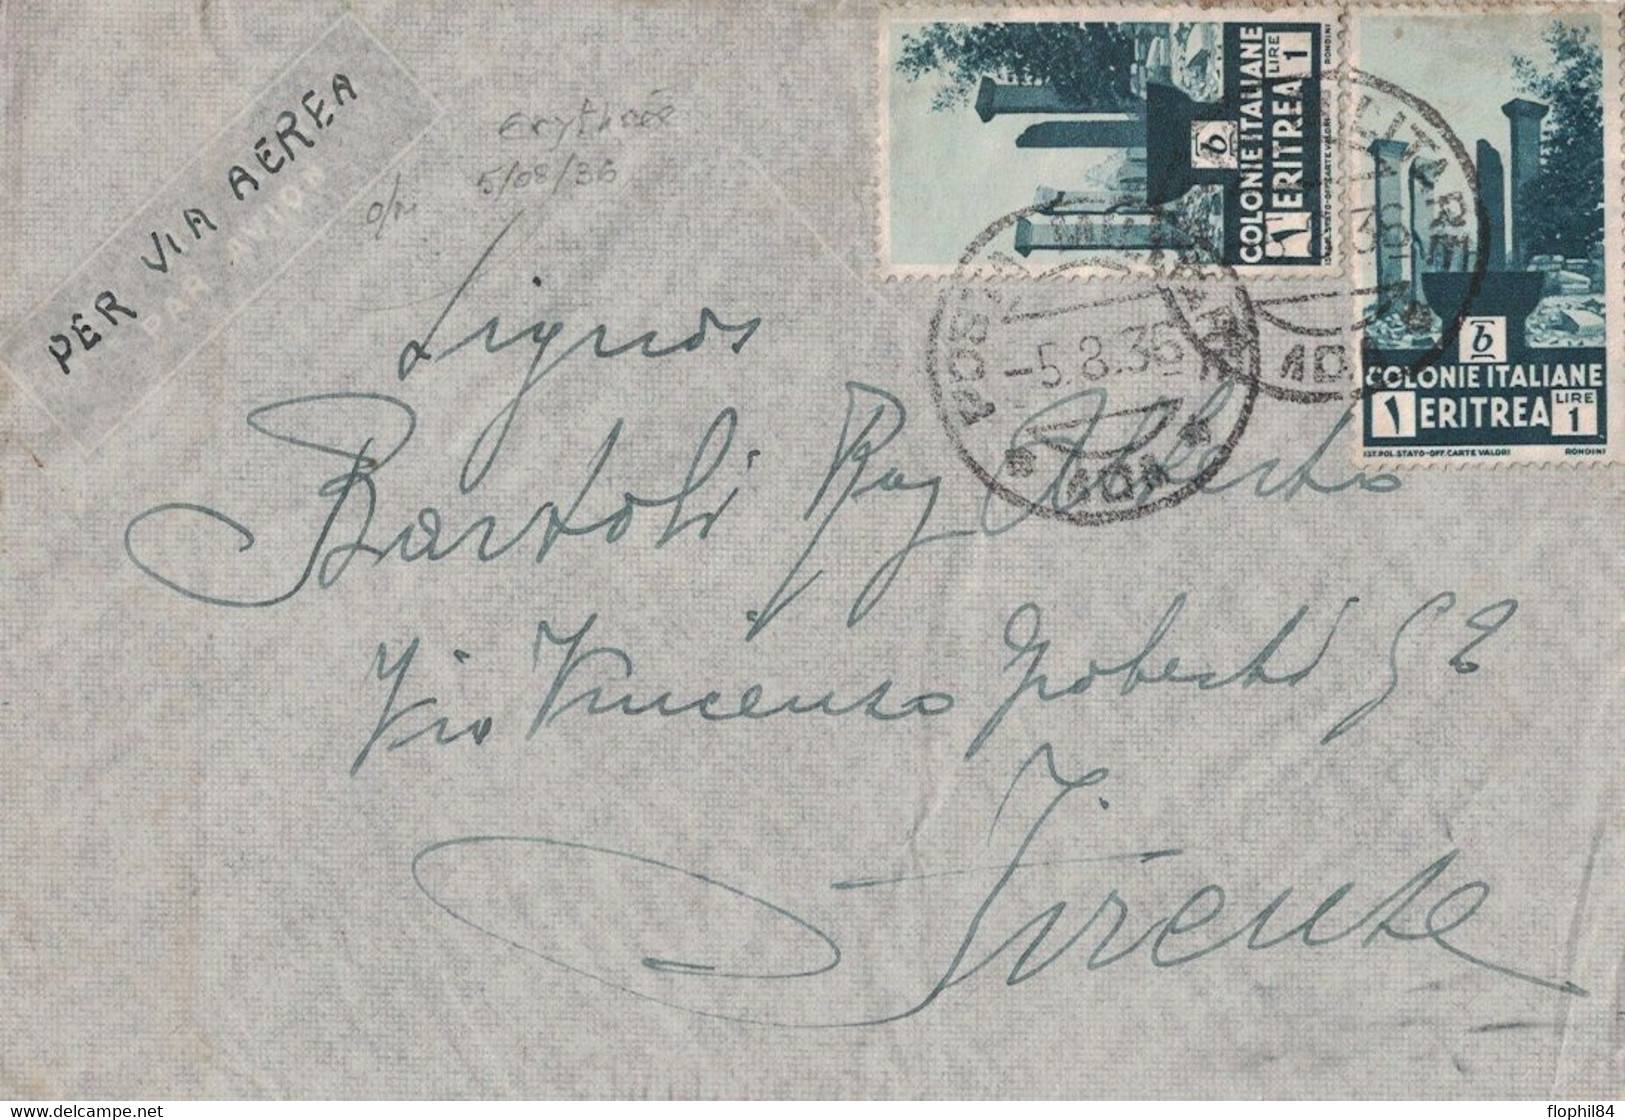 PER VIA AEREA
PAR AVION
Erythrée
5/08/36
COLONIE ITALIANE
1 ERITREA LIRE 1
IST. POL. STATO-OFF. CARTE VALORI RONDINI
POSTA MILITARE
-5.8.36
10A
COLONIE ITALIANE
1 ERITREA LIRE 1
IST. POL. STATO-OFF. CARTE VALORI RONDINI
POSTA MILITARE
10A
Signor
Bartoli Rag Alberto
Via Vincenzo Gioberti 52
Firenze
flophil84